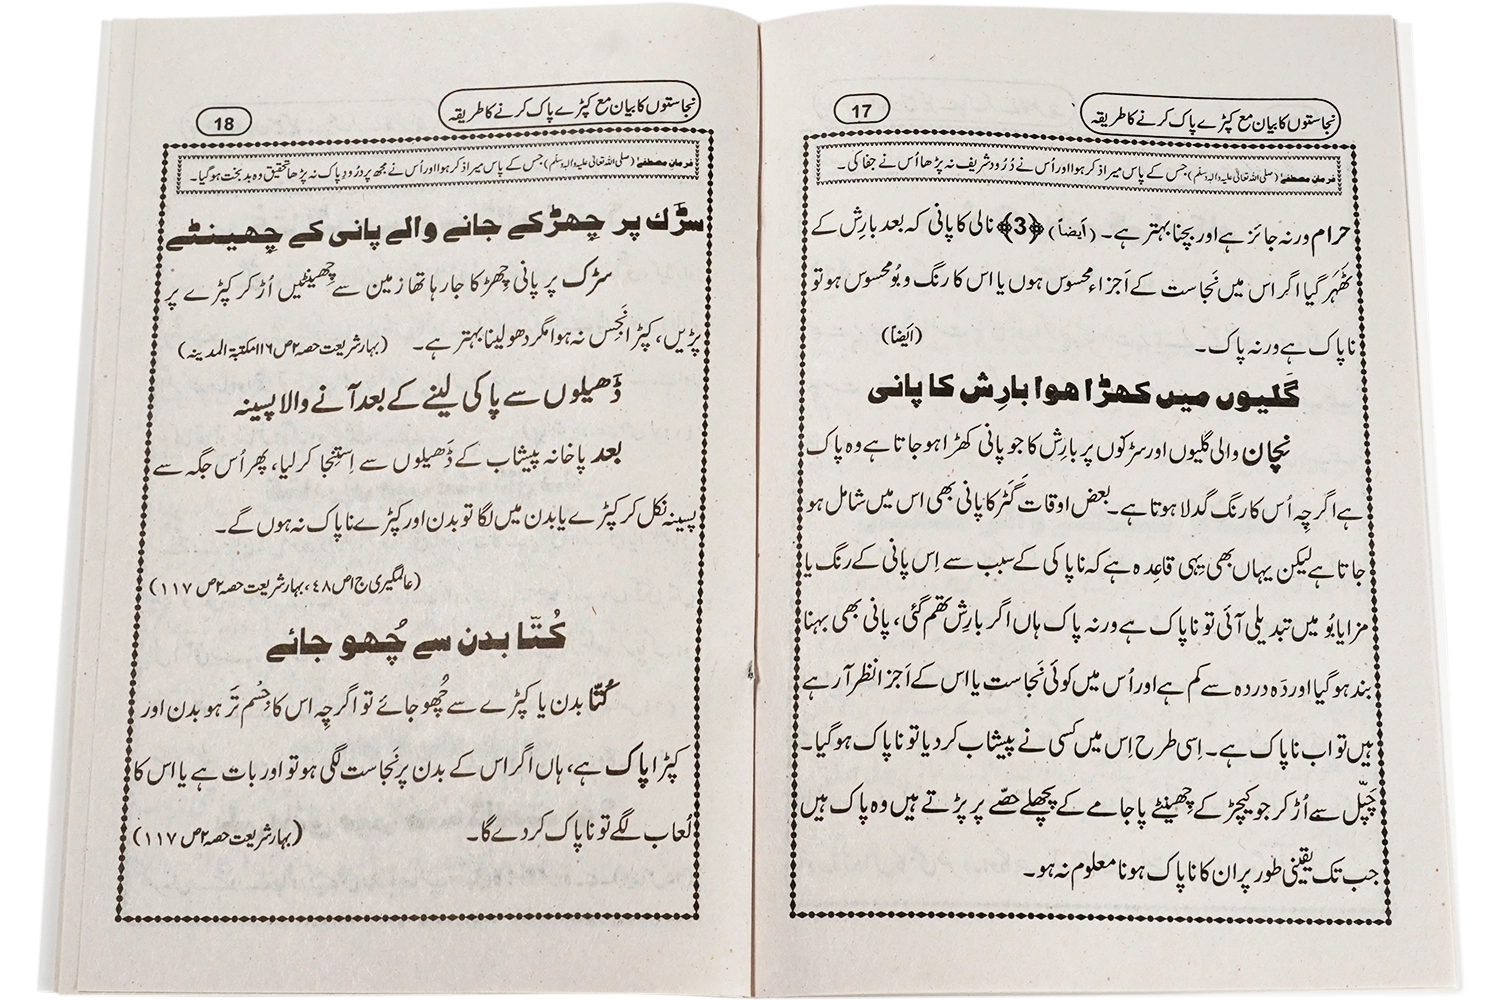 نجاستوں کا بیان مع کپڑے پاک کرنے کا طریقہ
17
فرمانِ مصطفےٰ (صلی اللہ تعالیٰ علیہ والہٖ وسلّم) جس کے پاس میرا ذکر ہوا اور اُس نے دُرُود شریف نہ پڑھا اُس نے جفا کی۔
حرام ورنہ جائز ہے اور بچنا بہتر ہے۔ (اَیضاً) ﴿3﴾ نالی کا پانی کہ بعد بارِش کے
ٹھہر گیا اگر اس میں نَجاست کے اَجزاء محسوس ہوں یا اس کا رنگ و بُو محسوس ہو تو
ناپاک ہے ورنہ پاک۔ (اَیضاً)
گلیوں میں کھڑا ھوا بارِش کا پانی
نِچان والی گلیوں اور سڑکوں پر بارِش کا جو پانی کھڑا ہو جاتا ہے وہ پاک
ہے اگرچِہ اُس کا رنگ گدلا ہوتا ہے۔ بعض اوقات گٹر کا پانی بھی اس میں شامل ہو
جاتا ہے لیکن یہاں بھی یِہی قاعِدہ ہے کہ ناپاکی کے سبب سے اِس پانی کے رنگ یا
مزا یا بُو میں تبدیلی آئی تو ناپاک ہے ورنہ پاک ہاں اگر بارِش تھم گئی، پانی بھی بہنا
بند ہو گیا اور دَہ دردہ سے کم ہے اور اُس میں کوئی نَجاست یا اس کے اَجزا نظر آ رہے
ہیں تو اب ناپاک ہے۔ اِسی طرح اِس میں کسی نے پیشاب کر دیا تو ناپاک ہو گیا۔
چَپّل سے اُڑ کر جو کیچڑ کے چھینٹے پاجامے کے پچھلے حصّے پر پڑتے ہیں وہ پاک ہیں
جب تک یقینی طور پر ان کا ناپاک ہونا معلوم نہ ہو۔
نجاستوں کا بیان مع کپڑے پاک کرنے کا طریقہ
18
فرمانِ مصطفےٰ (صلی اللہ تعالیٰ علیہ والہٖ وسلّم) جس کے پاس میرا ذکر ہوا اور اُس نے مجھ پر دُرُودِ پاک نہ پڑھا تحقیق وہ بد بخت ہو گیا۔
سڑک پر چِھڑکے جانے والے پانی کے چِھینٹے
سڑک پر پانی چِھڑکا جا رہا تھا زمین سے چِھینٹیں اُڑ کر کپڑے پر
پڑیں، کپڑا نَجِس نہ ہوا مگر دھو لینا بہتر ہے۔ (بہار شریعت حصہ ۲ ص ۱۱۶ مکتبۃ المدینہ)
ڈَھیلوں سے پاکی لینے کے بعد آنے والا پسینہ
بعد پاخانہ پیشاب کے ڈَھیلوں سے اِستِنجا کر لیا، پھر اُس جگہ سے
پسینہ نکل کر کپڑے یا بدن میں لگا تو بدن اور کپڑے ناپاک نہ ہوں گے۔
(عالمگیری ج ۱ ص ۴۸، بہار شریعت حصہ ۲ ص ۱۱۷)
کُتّا بدن سے چُھو جائے
کُتّا بدن یا کپڑے سے چُھو جائے تو اگرچِہ اس کا جِسْم تَر ہو بدن اور
کپڑا پاک ہے، ہاں اگر اس کے بدن پر نَجاست لگی ہو تو اور بات ہے یا اس کا
لُعاب لگے تو ناپاک کر دے گا۔ (بہار شریعت حصہ ۲ ص ۱۱۷)